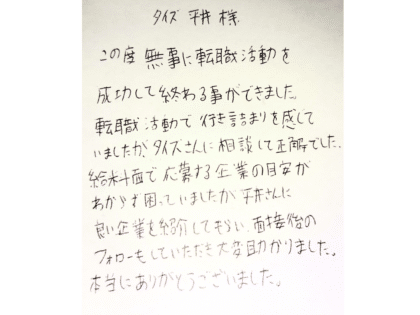 タイズ 平井 様
この度 無事に転職活動を
成功して終わる事ができました。
転職活動で行き詰まりを感じて
いましたが、タイズさんに相談して正解でした。
給料面で応募する企業の目安が
わからず困っていましたが平井さんに
良い企業を紹介してもらい、面接後の
フォローもしていただき大変助かりました。
本当にありがとうございました。